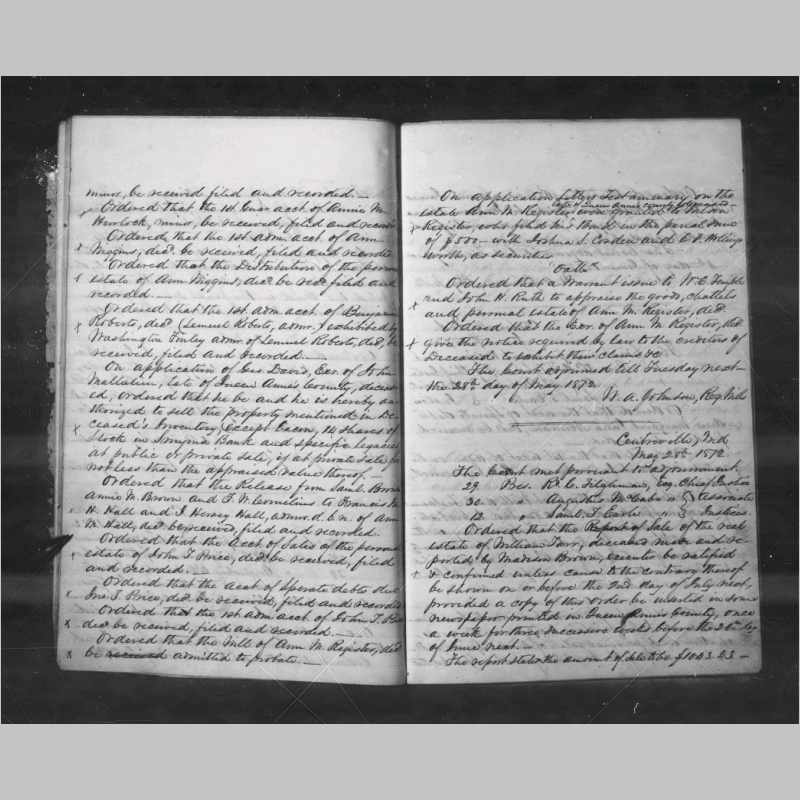 minor, be received filed and recorded. —
Ordered that the 1st Guar acct of Annie M.
Hurlock, minor, be received, filed and recor
Ordered, that the 1st adm. acct of Ann
Wiggins, decd. be received, filed and recorde
Ordered that the Distribution of the person
estate of Ann Wiggins, decd. be recd. filed and
recorded. —
Ordered that the 1st adm. acct of Benjamin
Roberts, decd (Lemuel Roberts, admr.) exhibited by
Washington Finley admr of Lemuel Roberts, decd. be
received, filed and recorded. —
On application of Geo David, Exr. of John
late of Queen Anne's County, deceas
ed, ordered that he be and he is hereby au
thorized to sell the property mentioned in De
ceased's Inventory, except Bacon, 14 shares of
Stock in Smyrna Bank and specific legacies
at public or private sale, if at private sale for
not less than the appraised value thereof. —
Ordered that the Release from Saml. Brown
Annie N. Brown and T. W. Cornelius to Francis
H. Hall and J. Henry Hall, admrs. d. b. n. of Ann
M. Hall, decd. be received, filed and recorded.
Ordered that the Acct of Sales of the person
estate of John T. Price, decd. be received, filed
and recorded.
Ordered that the acct of Sperate debts due
Jno. T. Price, decd. be received, filed and recorded
Ordered that the 1st adm acct of John T. Price
decd be received, filed and recorded.
Ordered that the Will of Ann M. Register, decd
be received admitted to probate. —
On application Letters Testamentary on the
late of Queen Anne's County deceased
estate Ann M. Register were granted to
Register, who filed his Bond in the penal sum
of $500 — with Joshua S. Corden and
worth, as securities.
Oath.
Ordered that a Warrant issue to Wm. C. Temple
and John H. Ruth to appraise the goods, chattels
and personal estate of Ann M. Register, decd.
Ordered that the Exr. of Ann M. Register, decd
give the notice required by law to the creditors of
Deceased to exhibit their claims &c.
The Court adjourned till Tuesday next
the 28th day of May 1872.
W. A. Johnson, Reg. Wills
Centreville, Md
May 28th 1872.
The Court met pursuant to adjournment
29 Pres. Wm. C. Tilghman, Esq. Chief Justice
30 " Augustus McCabe " } Associate
12 " Saml. T. Earle " } Justices.
Ordered that the Report of Sale of the real
estate of William Tarr, deceased made and re-
ported by Madison Brown, executor be ratified
& confirmed unless cause to the contrary thereof
be shown on or before the 2nd. day of July next,
provided a copy of this order be inserted in some
newspaper printed in Queen Anne's County, once
a week for three successive weeks before the 28th day
of June next. —
The report states the amount of sale to be $1043.23 —